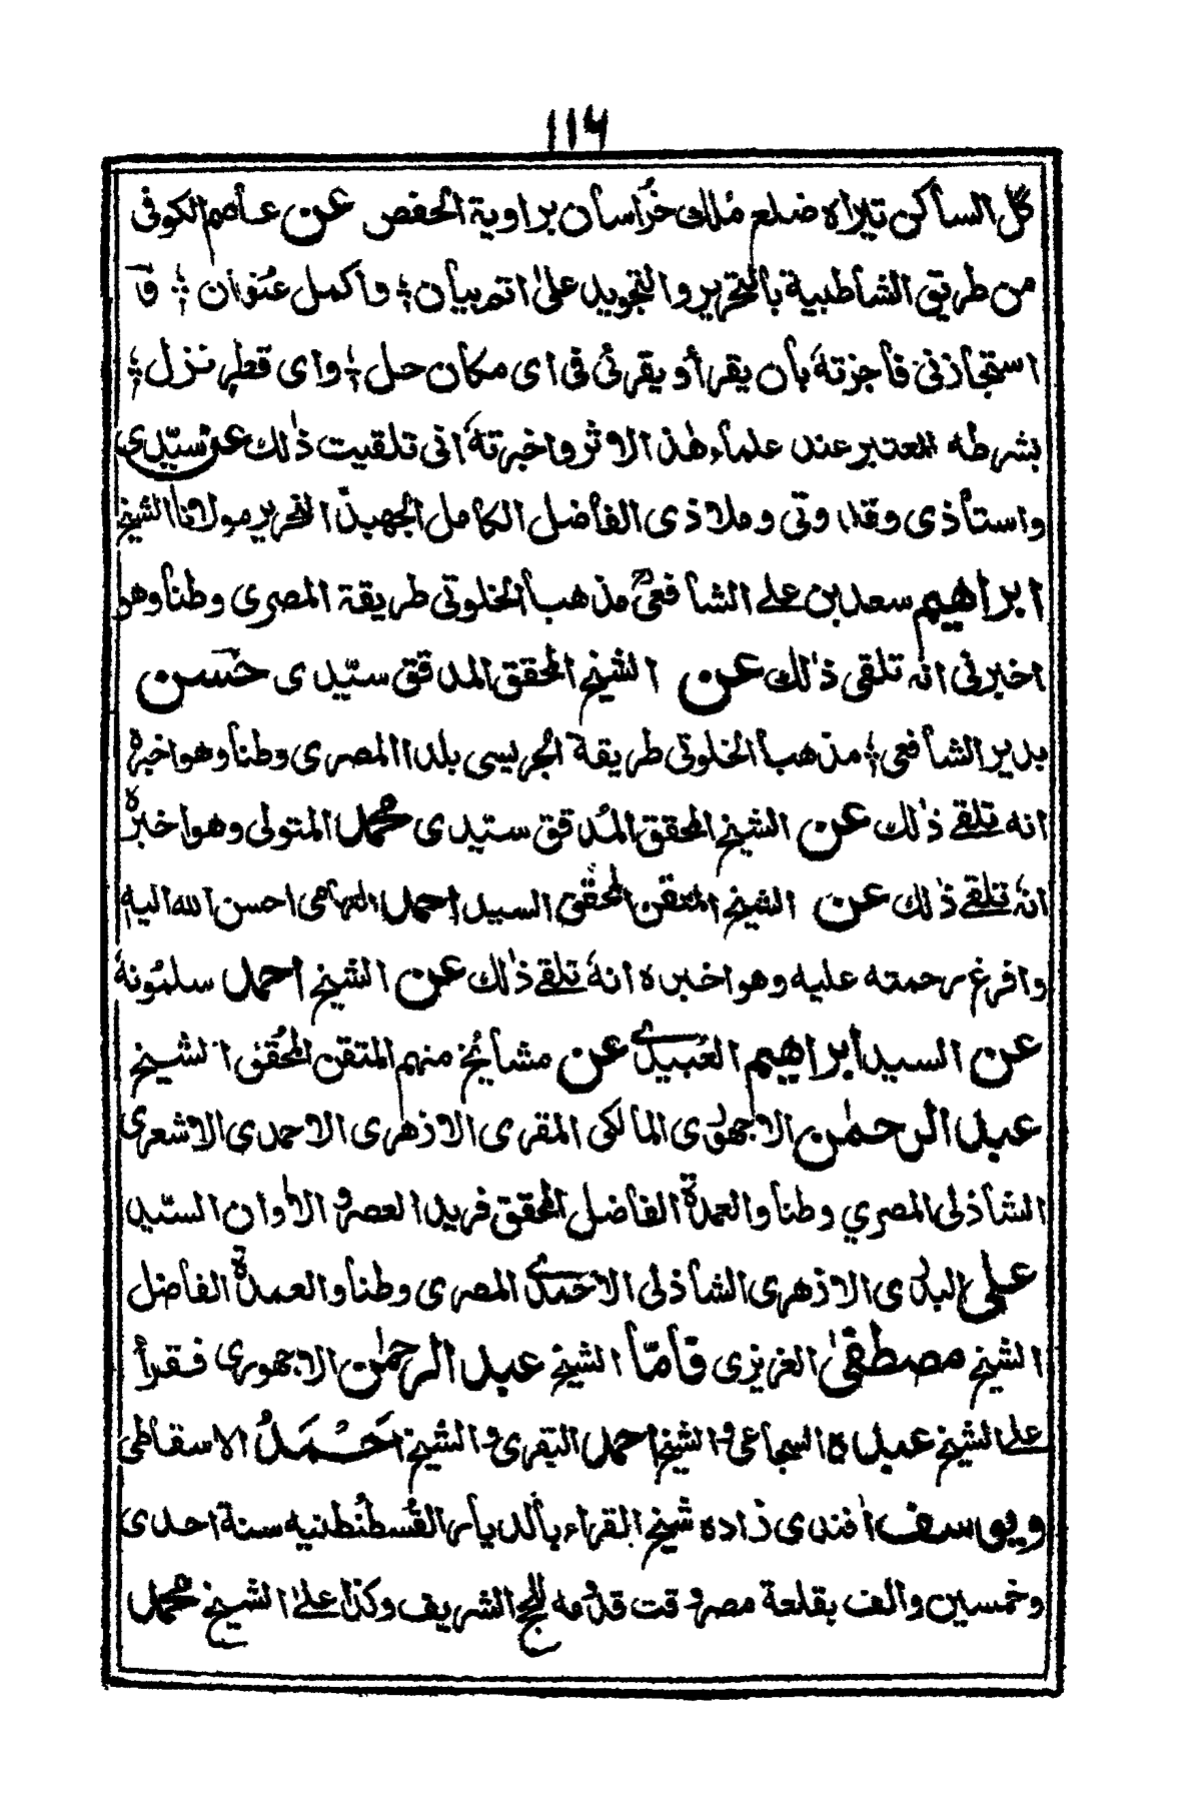 ۱۱۶
گل الساكن تيراه ضلع ملك خراسان براوية الحفص عن عاصم الكوفي
من طريق الشاطبية بالتحرير والتجويد على اتم بيان ؛ واكمل عنوان ؛ وقد
استجازني فاجزته بأن يقرأ و يقرئ في اى مكان حل ؛ واى قطر نزل ؛
بشرطه المعتبر عند علماء هذا الاثر واخبرته انى تلقيت ذلك عن سيّدى
واستأذى وقدوتى وملاذى الفاضل الكامل الجهبذ النحرير مولانا الشيخ
ابراهيم سعد بن على الشافعى مذهباً الخلوتى طريقة المصرى وطناً وهو
اخبرنى انه تلقى ذلك عن الشيخ المحقق المدقق سيّدى حسن
بدير الشافعى ؛ مذهباً الخلوتى طريقة الجريسى بلدا المصرى وطناً وهو اخبره
انه تلقى ذلك عن الشيخ المحقق المُدقق سيّدى محمد المتولى وهو اخبره
انه تلقى ذلك عن الشيخ المتقن المحقق السيد احمد التهامى احسن الله اليه
وافرغ رحمته عليه وهو اخبره انه تلقى ذلك عن الشيخ احمد سلمونه
عن السيد ابراهيم العبيدى عن مشائخ منهم المتقن المحقق الشيخ
عبد الرحمٰن الاجهورى المالكى المقرى الازهرى الاحمدى الاشعرى
الشاذلى المصري وطناً والعمدة الفاضل المحقق فريد العصر و الاوان السيّد
على البدرى الازهرى الشاذلى الاحمدى المصرى وطناً والعمدة الفاضل
الشيخ مصطفىٰ العزيزى فأمّا الشيخ عبد الرحمٰن الاجهورى فقرأ
على الشيخ عبده السجاعى و الشيخ احمد البقرى و الشيخ احمد الاسقاطى
ويوسف افندى زاده شيخ القراء بالديار القسطنطنيه سنة احدى
وخمسين والف بقلعة مصر وقت قدومه للحج الشريف وكذا على الشيخ محمد